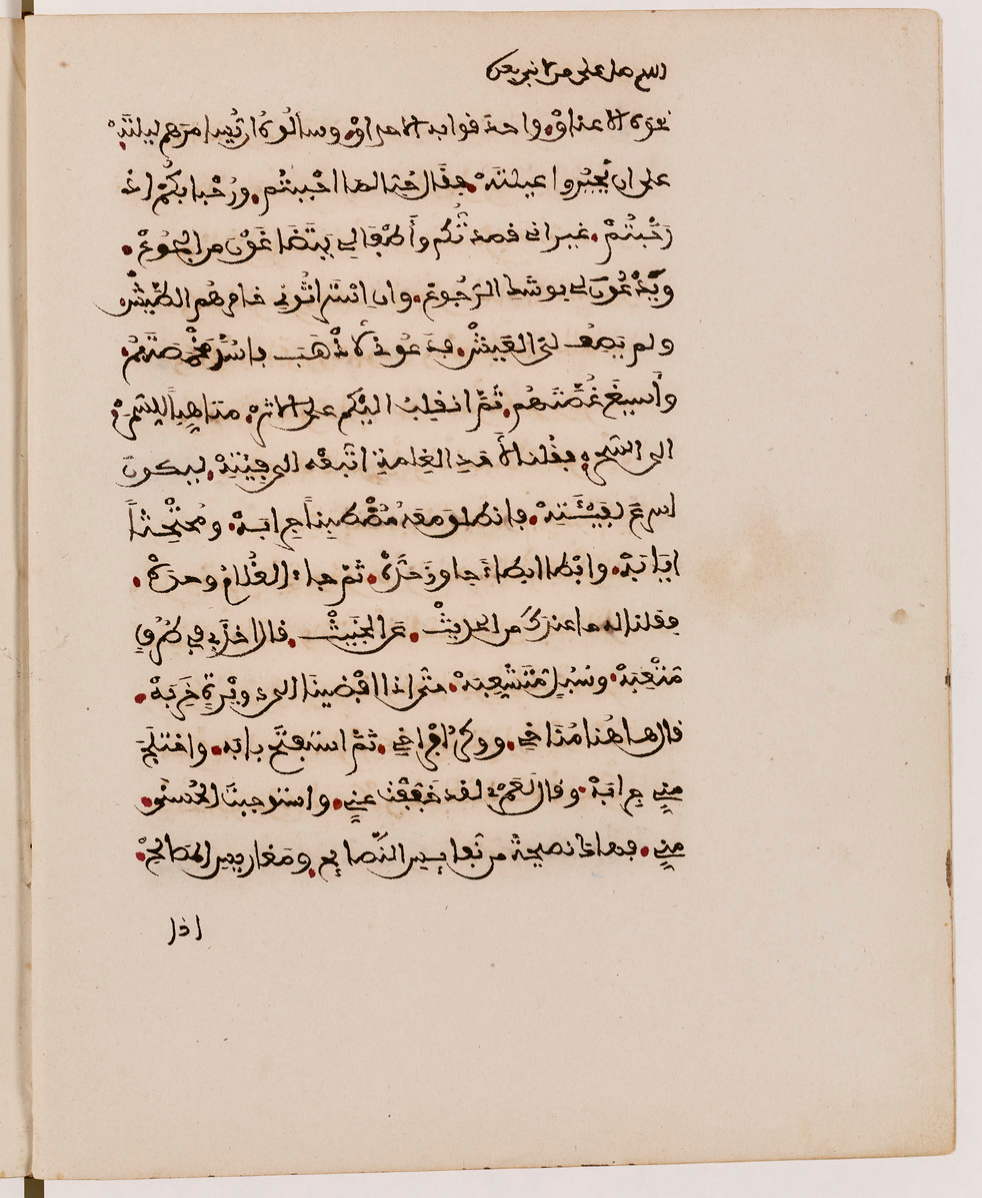 اللهم صل على من لا نبي بعده
نحوه الاعناقْ واحدقوا به الاحداقْ وسألُوهُ ان يُسامرهم ليلتَهْ
على ان يَجْبُروا عيلتَهْ فقال حُبّا لما احْببتُم ورُحْبا بكُمْ اذ
رَحَّبتُمْ غير اني قصدتُكم وأَطْفَالي يَتَضَاغَوْنَ من الجُوعْ
ويَدْعُونَ لي بوشْك الرُجُوعْ وان اِسْتَراثُونِي خامرهُم الطيْشْ
ولم يَصْفُ لهم العَيْشْ فدَعُوني لأَذْهَبَ فاسُدَّ مَخْمَصَتَهُمْ
وأسيغَ غُصَّتَهُم ثمّ انقلِبُ اليْكم على الاثرْ متاهِباً للسَّمَرْ
الى السَّحَرْ فقُلنا لأَحَدِ الغِلمةِ اتّبعْه الى فِيَتِهْ ليكونَ
اسرعَ لفَيْئَتهْ فانطلق معَهُ مُضْطبِناً جِرابهْ ومُحَثْحِثاً
ايَابَهْ وابْطا ابطاءً جاوزَ حَدَّهْ ثمّ جاء الغُلامُ وحدَهْ
فقلنا له ما عندكَ من الحديثْ عَن الخَبيثْ قال اخذَ بي في طُرُقٍ
مُتْعِبَهْ وسُبُلٍ مُتَشَعِّبَهْ حتى اذا افْضينَا الى دويْرةٍ خَرِبَهْ
قال هاهُنا مُنَاخِي ووكرُ افْراخِي ثمّ استفتحَ بابَه واختلجَ
مِنِّي جِرابَهْ وقال لعَمْري لقد خَفَّفْتَ عنِّي واستوجبْتَ الحُسْنَى
مِنِّي فهاكَ نصيحةً من نفايسِ النَّصايح ومَغارسِ المَصالحْ
اذا